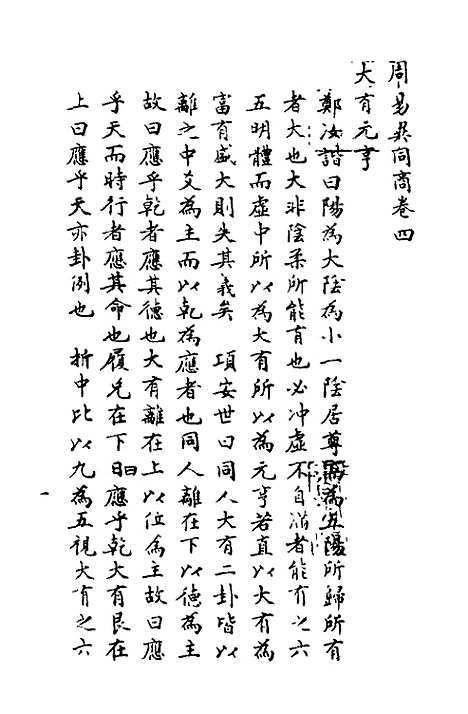 周易異同商卷四
大有元亨
鄭汝諧曰陽為大陰為小一陰居尊而為五陽所歸所有
者大也大非陰柔所能有也必冲虛不自滿者能有之六
五明體而虛中所以為大有所以為元亨若直以大有為
富有盛大則失其義矣　項安世曰同人大有二卦皆以
離之中爻為主而以乾為應者也同人離在下以德為主
故曰應乎乾者應其德也大有離在上以位為主故曰應
乎天而時行者應其命也履兌在下曰應乎乾大有艮在
上曰應乎天亦卦例也　折中比以九為五視大有之六
一